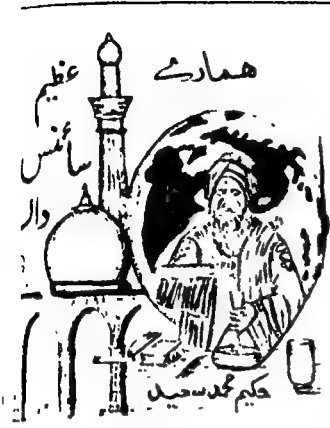 ہمارے
عظیم
سائنس
داں
حکیم محمد سعید